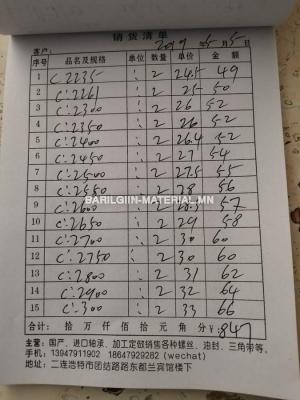 销货清单
客户: 2019年5月5日
序号 品名及规格 单位 数量 单价 金额
1 C:2235 : 2 24.5 49
2 C:2261 : 2 25 50
3 C:2300 : 2 26 52
4 C:2350 : 2 26 52
5 C:2400 : 2 26.4 52
6 C:2450 : 2 27 54
7 C:2500 : 2 27.5 55
8 C:2550 : 2 28 56
9 C:2600 : 2 57
10 C:2650 : 2 29 58
11 C:2700 : 2 30 60
12 C:2750 : 2 30 60
13 C:2800 : 2 31 62
14 C:2900 : 2 32 64
15 C:300 : 2 33 66
合计: 拾 万 仟 佰 拾 元 角 分 ¥:847
主营: 国产、进口轴承、加工定做销售各种螺丝、油封、三角带等。
手机: 13947911902 18647929282 (wechat)
地址: 二连浩特市团结路路东都兰宾馆楼下
BARILGIIN-MATERIAL.MN